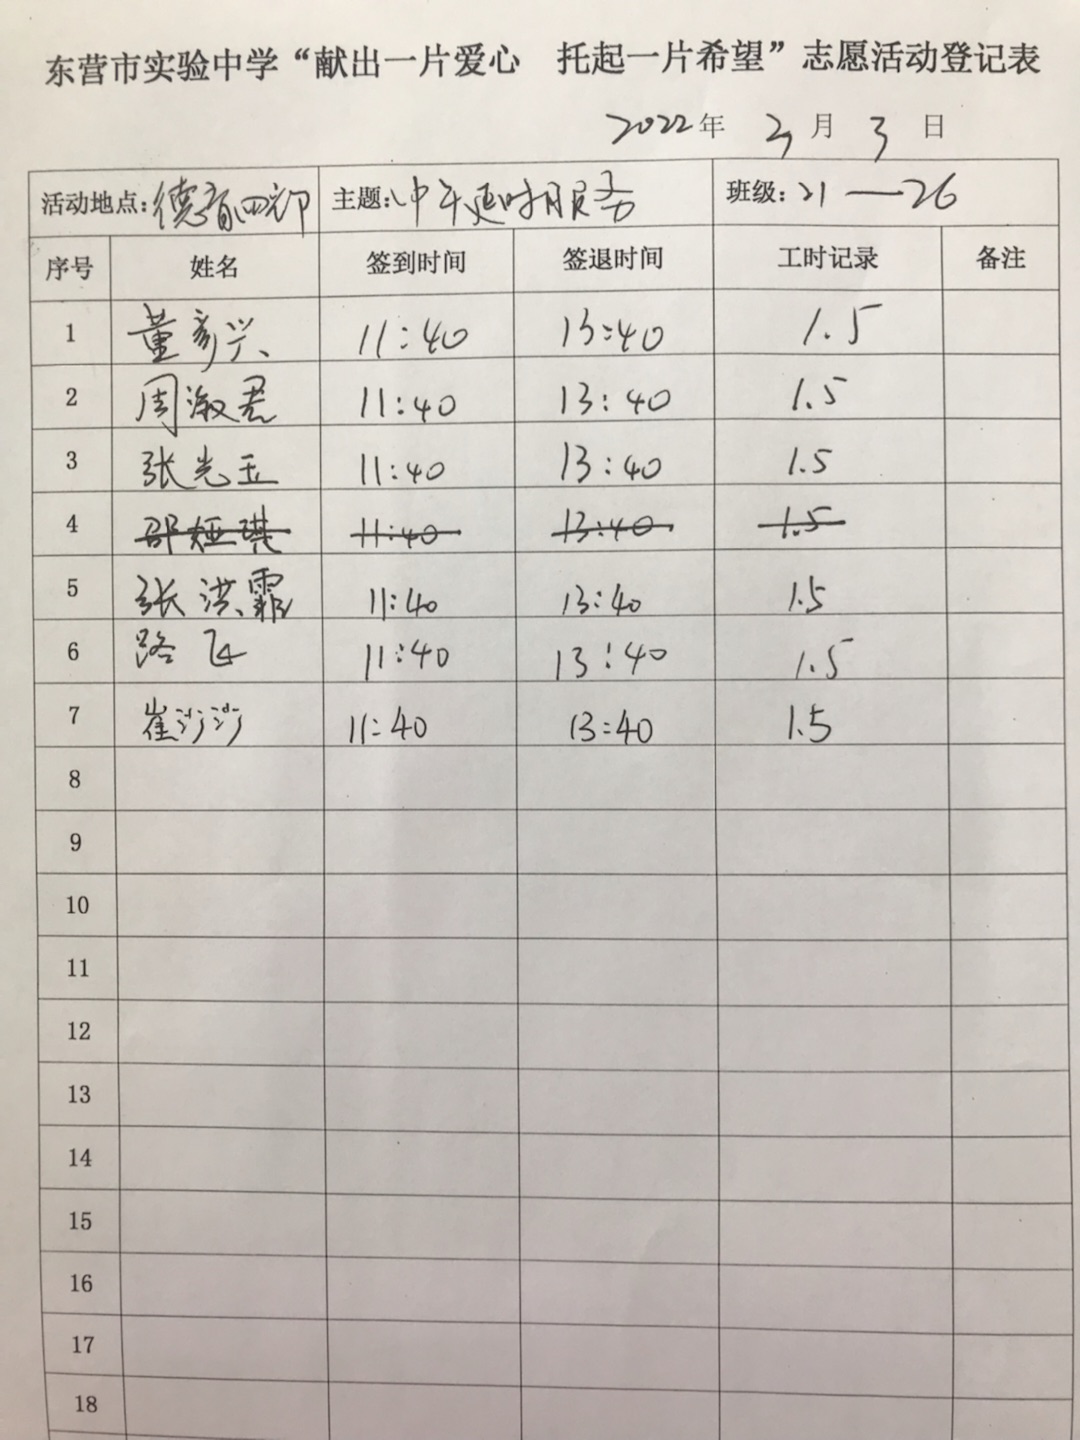 东营市实验中学“献出一片爱心 托起一片希望”志愿活动登记表
2022年 3月 3日
活动地点:德育四部 主题:中午延时服务 班级:21—26
序号 姓名 签到时间 签退时间 工时记录 备注
1 董彦兴 11:40 13:40 1.5
2 周淑君 11:40 13:40 1.5
3 张光玉 11:40 13:40 1.5
4 邵娅琪 11:40 13:40 1.5
5 张洪霏 11:40 13:40 1.5
6 路飞 11:40 13:40 1.5
7 崔莎莎 11:40 13:40 1.5
8
9
10
11
12
13
14
15
16
17
18